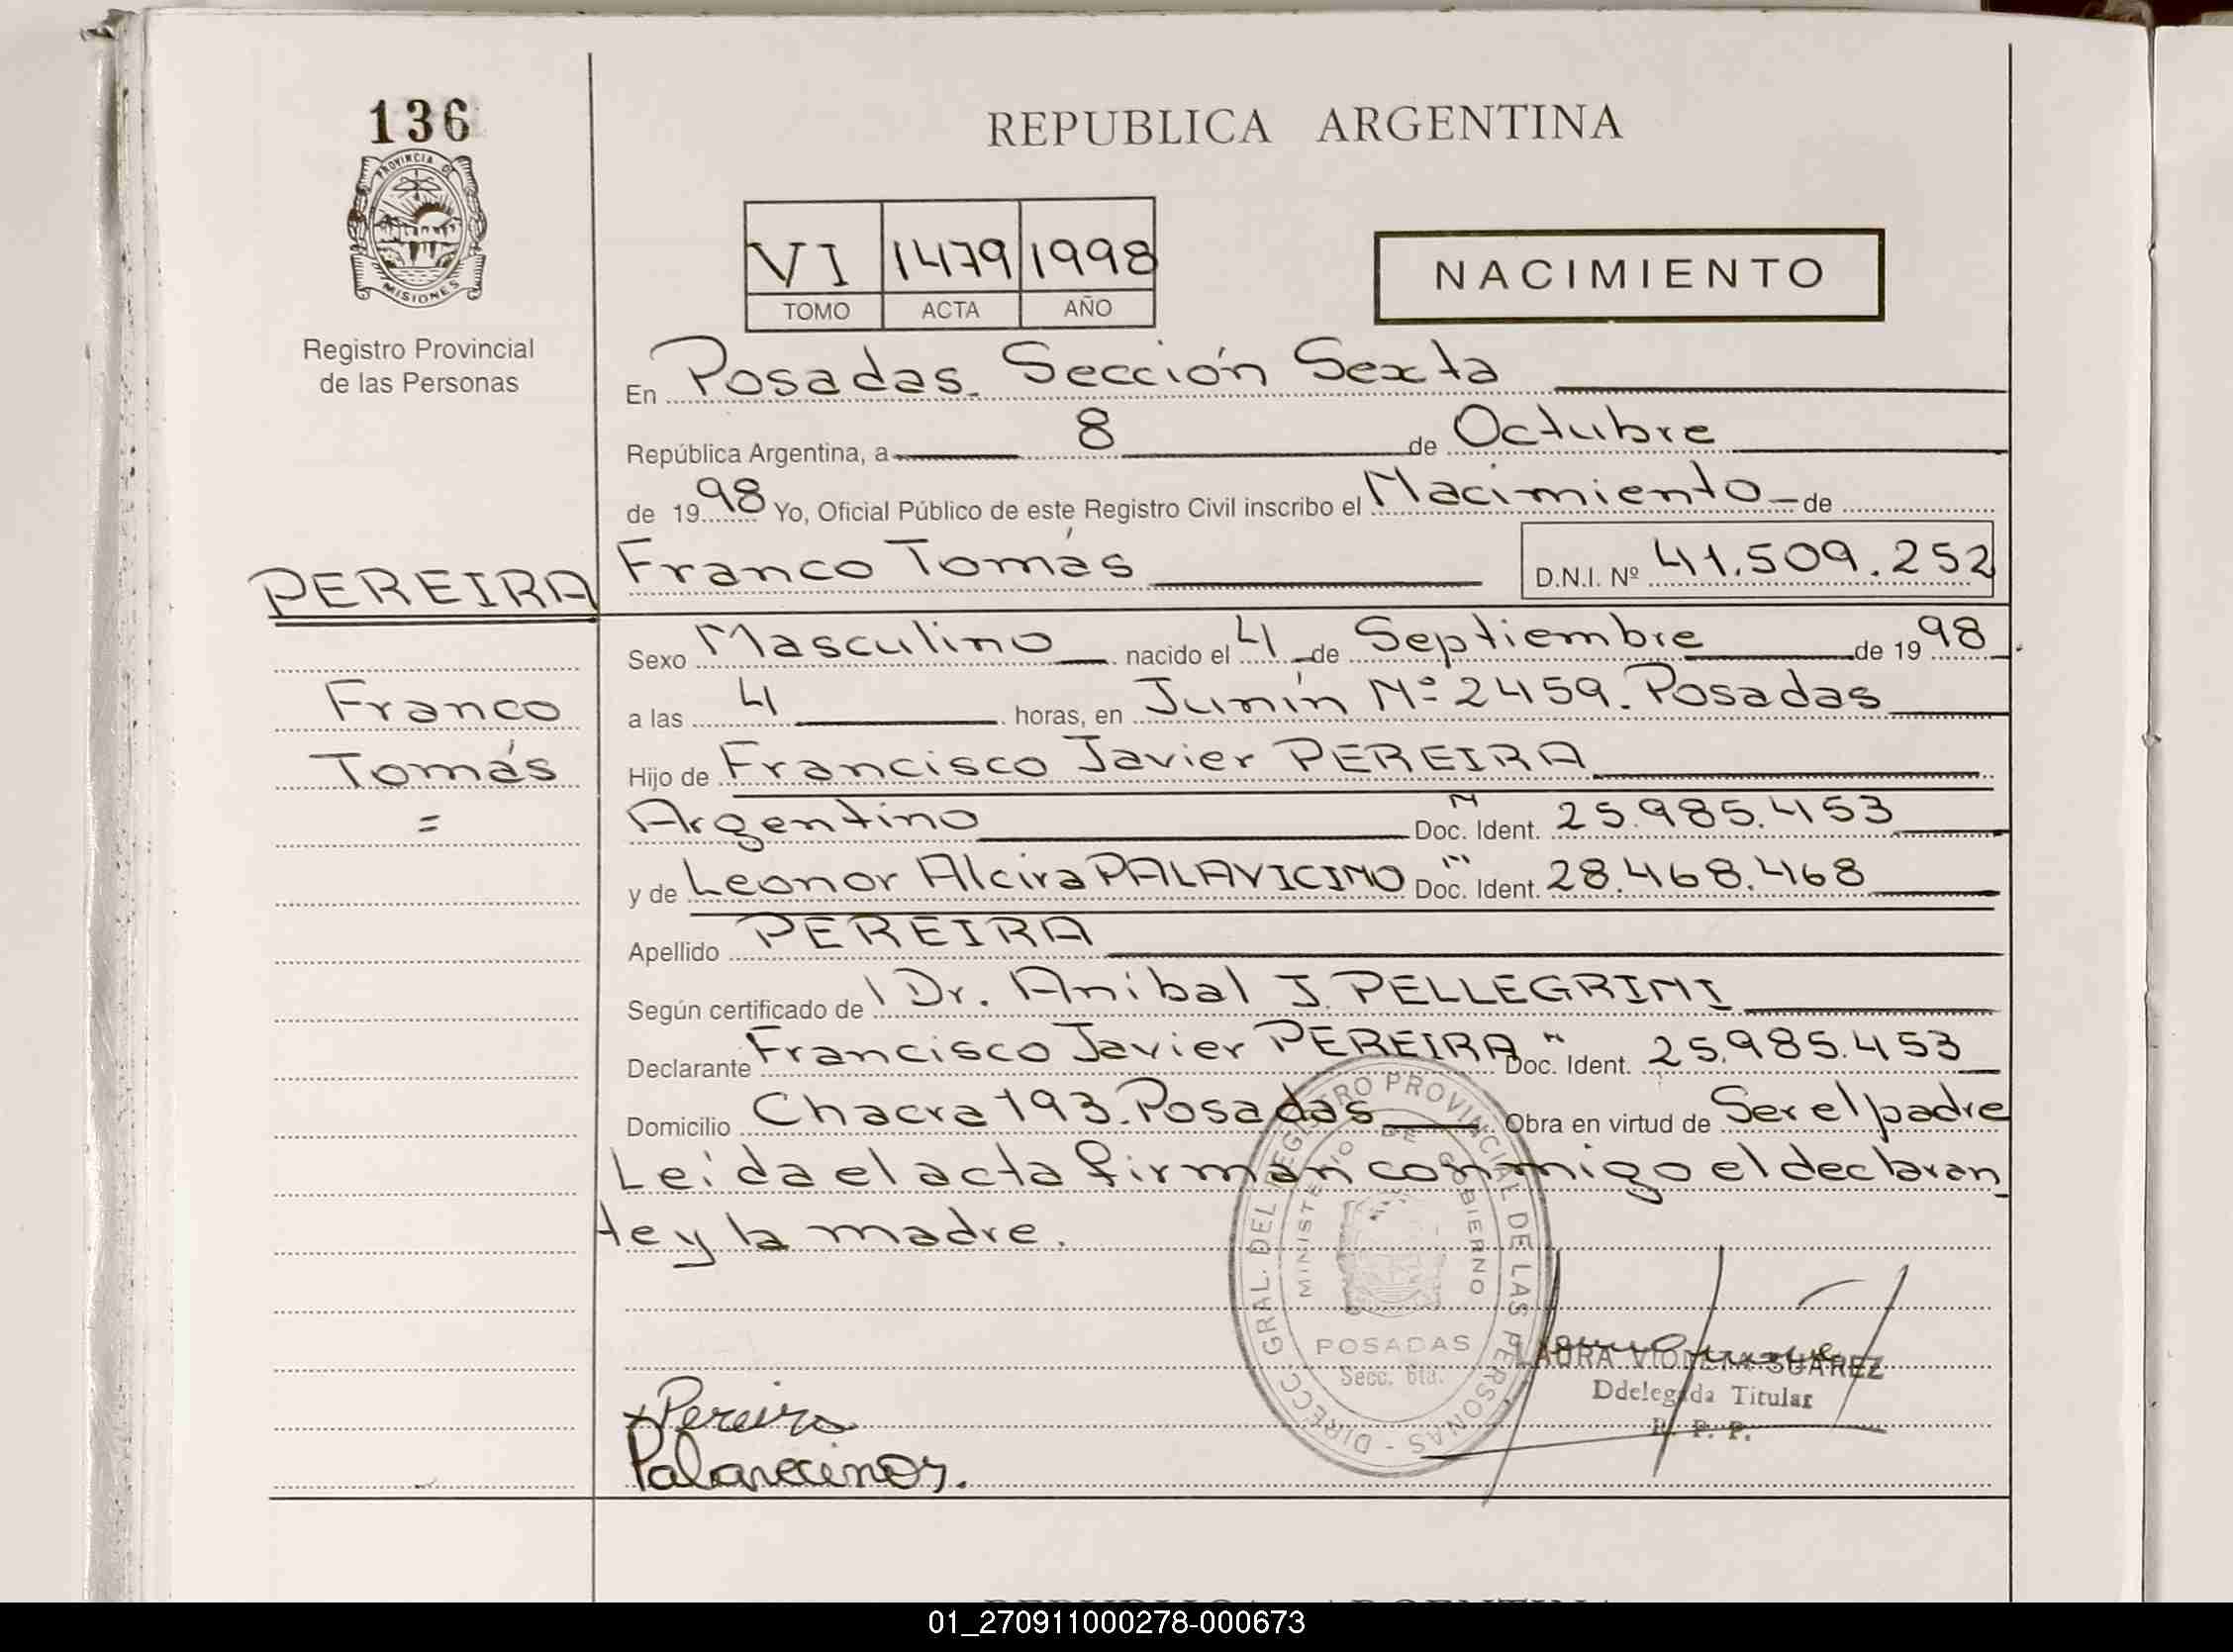 136
PROVINCIA DE
MISIONES
Registro Provincial
de las Personas
REPUBLICA ARGENTINA
VI 1479 1998
TOMO ACTA AÑO
NACIMIENTO
En Posadas. Sección Sexta
República Argentina, a 8 de Octubre
de 1998 Yo, Oficial Público de este Registro Civil inscribo el Nacimiento de
PEREIRA
Franco Tomás D.N.I. Nº 41.509.252
Sexo Masculino nacido el 4 de Septiembre de 1998
Franco
a las 4 horas, en Junín Nº 2459. Posadas
Tomás
Hijo de Francisco Javier PEREIRA
=
Argentino Doc. Ident. 25.985.453
y de Leonor Alcira PALAVICINO Doc. Ident. 28.468.468
Apellido PEREIRA
Según certificado de Dr. Anibal J. PELLEGRINI
Declarante Francisco Javier PEREIRA Doc. Ident. 25.985.453
Domicilio Chacra 193. Posadas Obra en virtud de Ser el padre
Leída el acta firman conmigo el declaran
te y la madre.
DIRECC. GRAL. DEL REGISTRO PROVINCIAL DE LAS PERSONAS -
MINISTERIO DE GOBIERNO
POSADAS
Secc. 6ta.
LAURA VIOLETA SUAREZ
Ddelegada Titular
R. P. P.
Pereira
REPUBLICA ARGENTINA
01_270911000278-000673